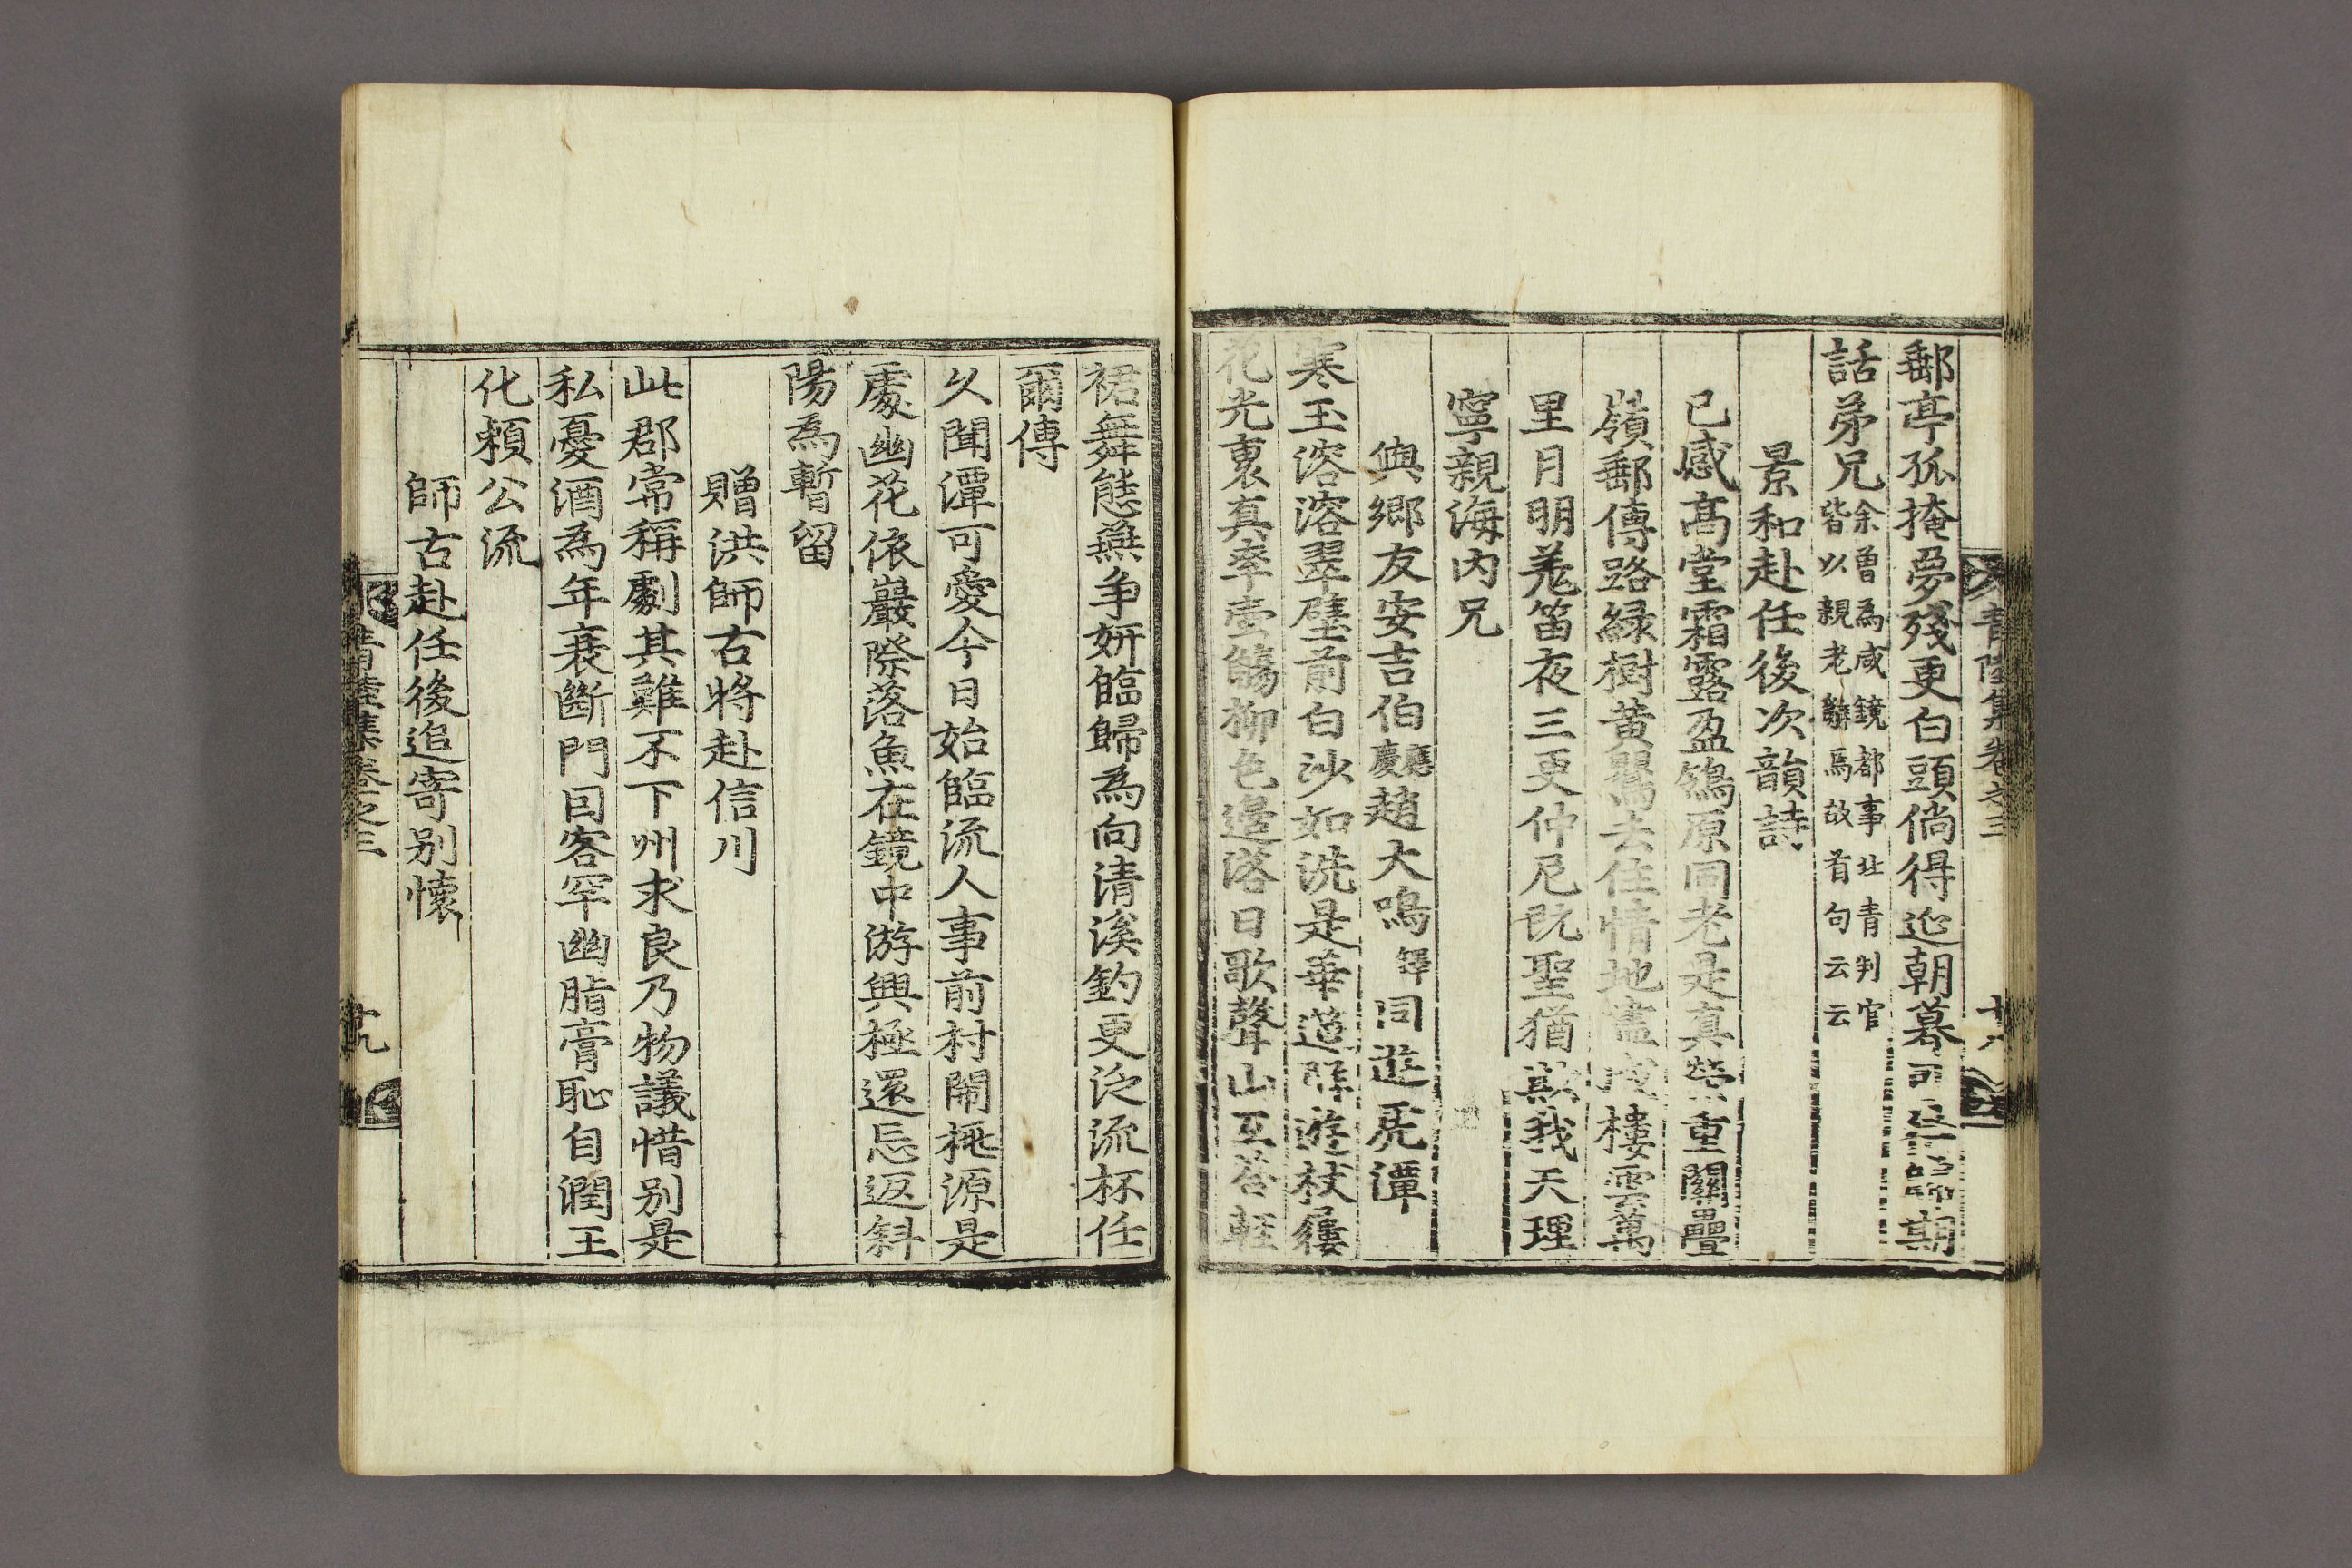 青陸集卷之三
郵亭孤掩夢殘更白頭倘得迎朝暮 期
話弟兄余曾為咸鏡都事北青判官
皆以親老辭焉故首句云云
景和赴任後次韻詩
已感高堂霜露盈鴒原同老是真榮重關疊
嶺郵傳路綠樹黃鸎去住情地盡 樓雲萬
里月明羗笛夜三更仲尼旣聖猶欺我天理
寧親海內兄
與鄉友安吉伯應慶趙大鳴鐸同遊虎潭
寒玉溶溶翠壁前白沙如洗是華 遊杖屨
花光裏真率壼觴柳色邊落日歌聲山互答輕
裙舞態燕爭妍臨歸為向清溪釣更泛流杯任
爾傳
久聞潭可愛今日始臨流人事前村閙桃源是
處幽花依巖際落魚在鏡中游興極還忘返斜
陽為暫留
贈洪師古將赴信川
此郡常稱劇其難不下州求良乃物議惜别是
私憂酒為年衰斷門因客罕幽脂膏恥自潤王
化賴公流
師古赴任後追寄别懷
青陸集卷之三 十九